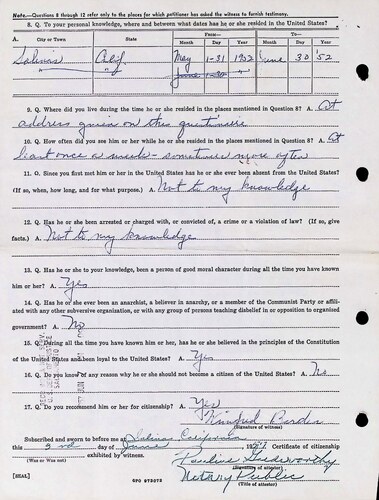 Note.—Questions 8 through 12 refer only to the places for which petitioner has asked the witness to furnish testimony.
8. Q. To your personal knowledge, where and between what dates has he or she resided in the United States?
A. City or Town State From— To—
Month Day Year Month Day Year
Salinas Calif. May 1-31 1952 June 30 '52
" " June 1-30
9. Q. Where did you live during the time he or she resided in the places mentioned in Question 8? A. At
address given on this
10. Q. How often did you see him or her while he or she resided in the places mentioned in Question 8? A. At
least once a week - sometimes more often
11. Q. Since you first met him or her in the United States has he or she ever been absent from the United States?
(If so, when, how long, and for what purpose.) A. Not to my knowledge
12. Q. Has he or she been arrested or charged with, or convicted of, a crime or a violation of law? (If so, give
facts.) A. Not to my knowledge
13. Q. Has he or she to your knowledge, been a person of good moral character during all the time you have known
him or her? A. Yes
14. Q. Has he or she ever been an anarchist, a believer in anarchy, or a member of the Communist Party or affili-
ated with any other subversive organization, or with any group of persons teaching disbelief in or opposition to organized
government? A. No
15. Q. During all the time you have known him or her, has he or she believed in the principles of the Constitution
of the United States and been loyal to the United States? A. Yes
16. Q. Do you know of any reason why he or she should not become a citizen of the United States? A. No
17. Q. Do you recommend him or her for citizenship? A. Yes
(Signature of witness)
Subscribed and sworn to before me at Salinas, California
this 3rd day of June, Certificate of citizenship
exhibited by witness. Pauline
(Was or Was not) (Signature of attestor)
Notary Public
[SEAL] GPO 873072 (Title of attestor)